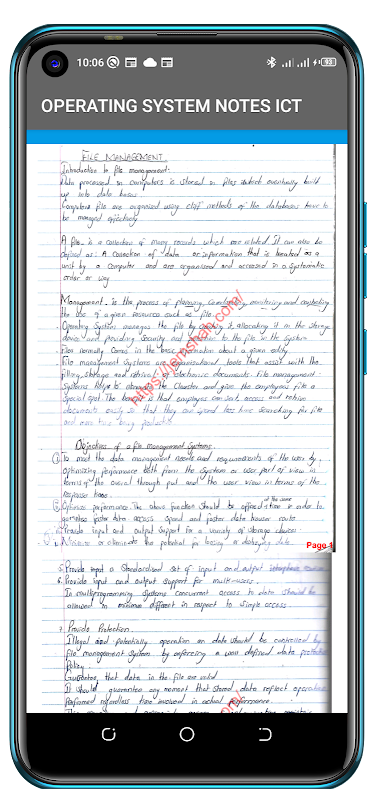 10:06
93
OPERATING SYSTEM NOTES ICT
FILE MANAGEMENT
Introduction to file management.
Data processed in computers is stored in files which eventually build
up into data bases
Computers file are organised using diff methods of the databases have to
be managed effectively
A file - is a collection of many records which are related. It can also be
defined as: A collection of data or information that is treated as a
unit by a computer and are organised and accessed in a systematic
order or way
Management - is the process of planning, monitoring and controlling
the use of a given resources such as file.
Operating System manages the file by allocating it in the storage
device and providing Security and to the file in the system
Files normally Comes in the basic information about a given entity
File management Systems are that assist with the
filling, storage and retrieval of electronic documents. File management
Systems helps to the Cluster and give the employees file a
Special spot. The is that employees can seek, access and retrive
documents easily so that they can spend less time searching for file
and more time being productive
https://jernshae.com/
Objectives of a file management Systems.
1 To meet the data management needs and requirements of the user by
optimizing performance both from the System or user part of view in
terms of the overall through put and the user view in terms of the
response time.
Optimise performance. The above function should be offered at the same time in order to
faster data access speed and faster data
Provide input and output Support for a variety of storage devices
4. or eliminate the potential for losing or destroying data
Page 1
5. Provide input a Standardised set of input and output interphase
6. Provide input and output support for multi-users.
In multiprogramming Systems concurrent access to data should be
allowed in minimise different in respect to single access.
7. Provide Protection.
Illegal and potentially operation on data should be controlled by
file management System by enforcing a user defined data protection
Policy.
Guarantee, that data in the file are valid
It should guarantee any moment that Stored data reflect operations
Performed regardless time involved in actual performance.